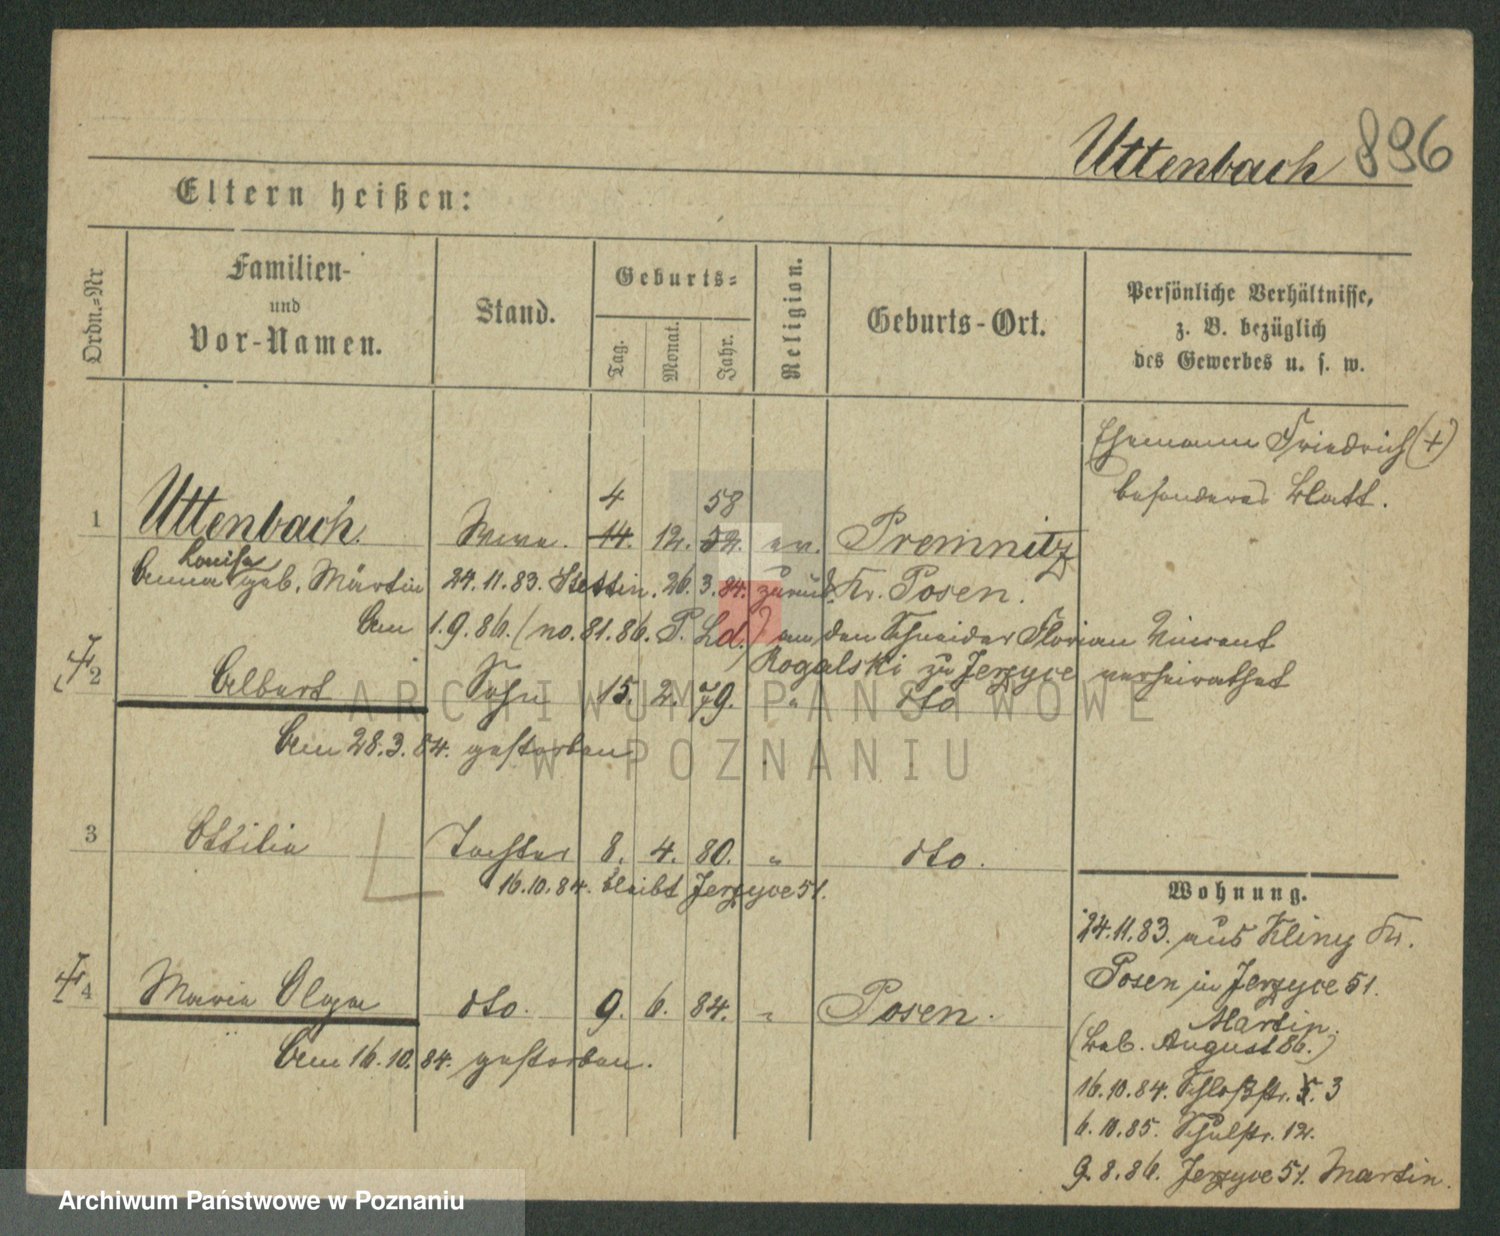 Uttenbach 896
Eltern heißen:
Ordn.=Nr
Familien-
und
Vor-Namen.
Stand.
Geburts=
Tag.
Monat.
Jahr.
Religion.
Geburts-Ort.
Persönliche Verhältnisse,
z. B. bezüglich
des Gewerbes u. s. w.
Ehemann Friedrich (+)
besonderes Blatt.
4 58
1 Uttenbach. Wwe. 14. 12. 52. ev. Premnitz
Louise
Anna geb. Märtin 24.11.83. Stettin. 26.3.84. zurück Kr. Posen.
Am 1.9.86. (no. 81.86. P. Ld.) an den Schneider Florian Vincent
Rogalski zu Jerzyce verheirathet
2 Albert Sohn 15. 2. 79. " dto
Am 28.3.84. gestorben
3 Ottilie Tochter 8. 4. 80. " dto.
16.10.84. bleibt Jerzyce 51.
4 Marie Olga dto. 9. 6. 84. " Posen.
Am 16.10.84. gestorben.
Wohnung.
24.11.83. aus Kliny Kr.
Posen in Jerzyce 51.
Martin.
August 86.)
16.10.84. Schloßstr. 5. 3
6.10.85. Schulstr. 12.
9.8.86. Jerzyce 51. Martin.
ARCHIWUM PAŃSTWOWE
W POZNANIU
Archiwum Państwowe w Poznaniu